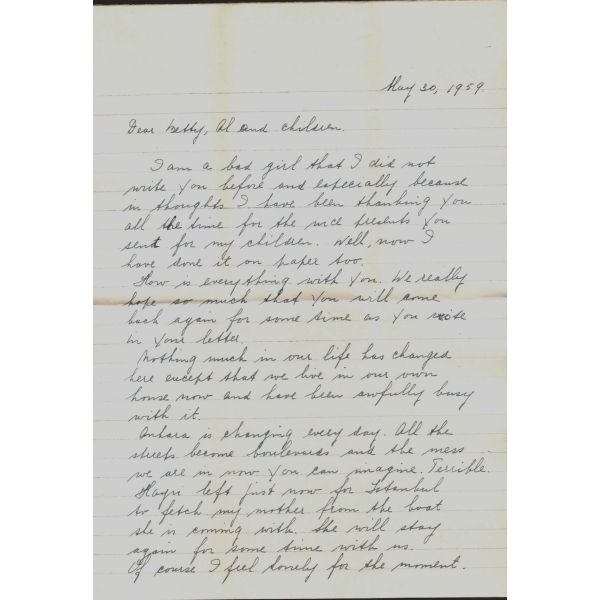 May 30, 1959
Dear Ketty, Al and children.
I am a bad girl that I did not
write you before and especially because
in thoughts I have been thanking you
all the time for the nice presents you
sent for my children. Well, now I
have done it on paper too.
How is everything with you. We really
hope so much that you will come
back again for some time as you write
in your letter.
Nothing much in our life has changed
here except that we live in our own
house now and have been awfully busy
with it.
Ankara is changing every day. All the
streets become boulevards and the mess
we are in now you can imagine. Terrible.
Hayri left just now for Istanbul
to fetch my mother from the boat
she is coming with. She will stay
again for some time with us.
Of course I feel lonely for the moment.